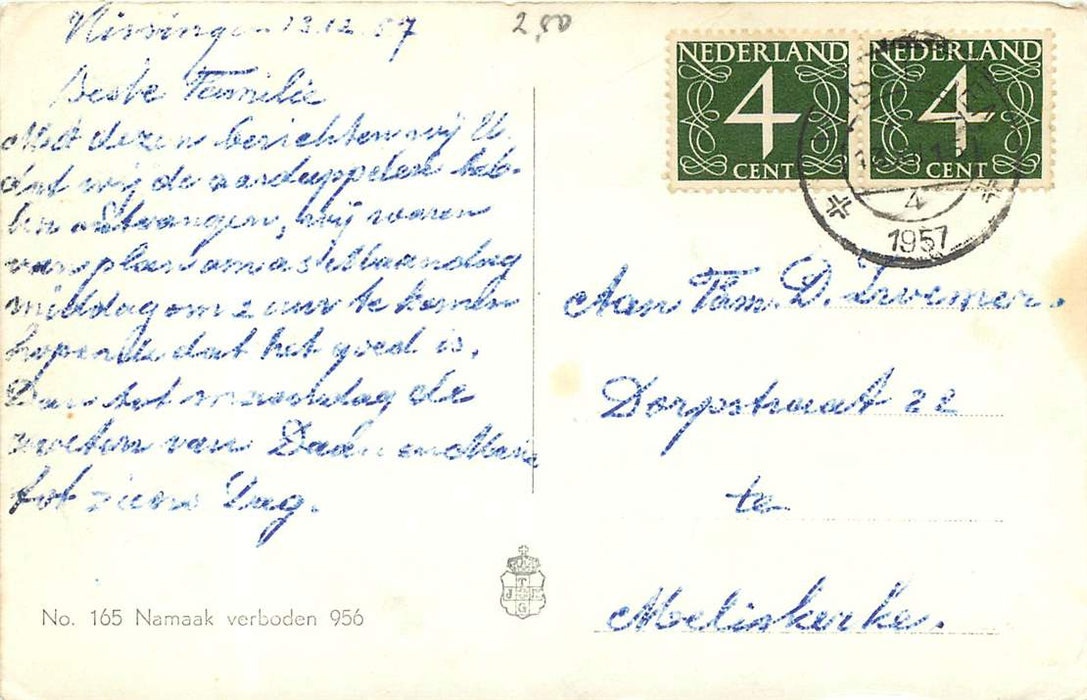 Vlissingen 13.12.57
2,50
Beste Familie
Met dezen berichten wij U
dat wij de aarduppelen heb-
ben ontvangen, wij waren
van plan om a.s. Maandag
middag om 2 uur te komen
hopende dat het goed is.
Dan tot maandag de
groeten van Daan en Marie
tot ziens Dag.
NEDERLAND
4
CENT
NEDERLAND
4
CENT
4
1957
Aan Fam. D.
Dorpstraat 22
te
Meliskerke.
T
J
G
No. 165 Namaak verboden 956